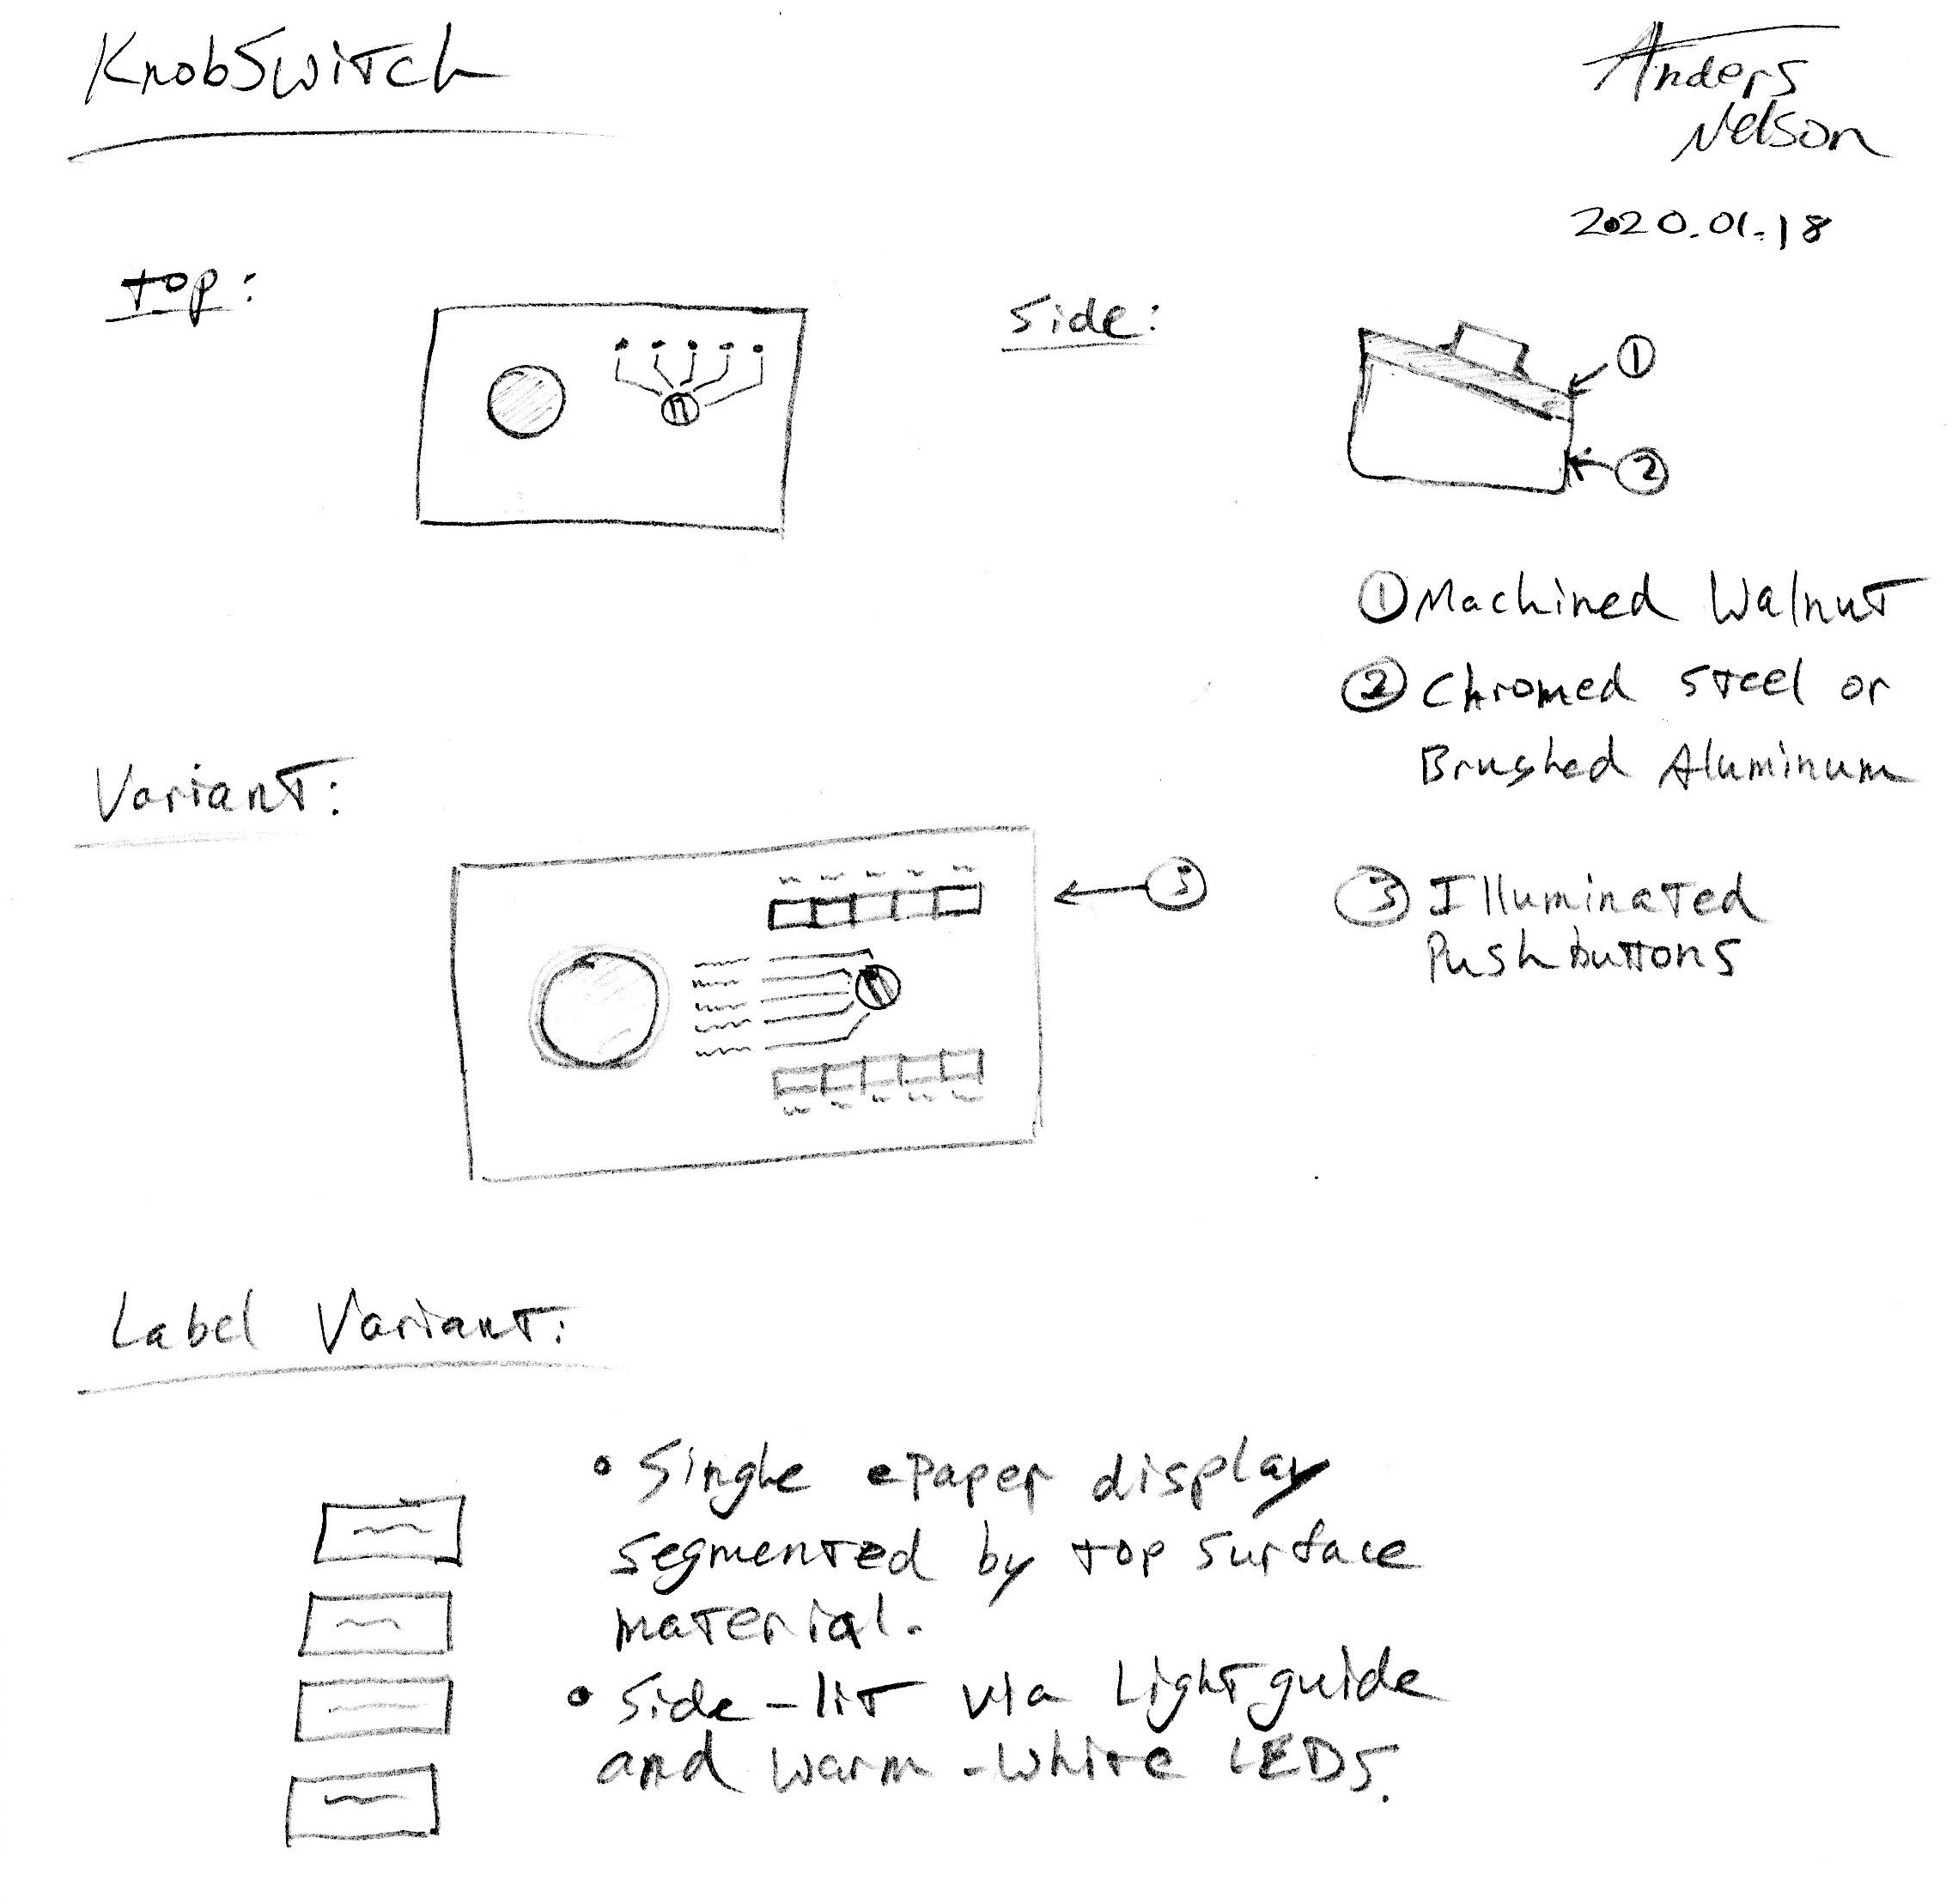 KnobSwitch
Anders
Nelson
2020.01.18
Top:
Side:
1
2
① Machined Walnut
② Chromed Steel or
Brushed Aluminum
Variant:
3
③ Illuminated
Pushbuttons
Label Variant:
• Single ePaper display
segmented by top surface
material.
• Side-lit via Lightguide
and warm-white LEDs.